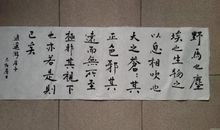 野馬也塵
埃也生物之
以息相吹也
天之蒼々其
正色邪其
遠而無所至
極邪其視下
也亦若是則
已矣